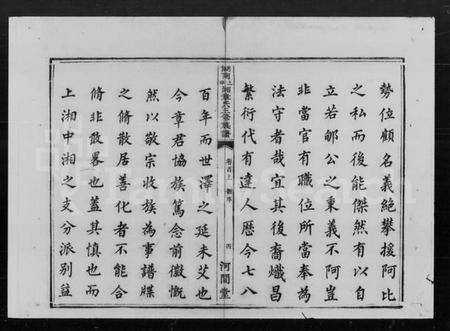 勢位顧名義絕攀援阿比
之私而後能傑然有以自
立若郇公之秉義不阿豈
非當官有職位所當奉為
法守者哉宜其後裔熾昌
繁衍代有達人歷今七八
湘章氏五修族譜
卷首上
新序
四
河間堂
百年而世澤之延未艾也
今章君協族篤念前徽慨
然以敬宗收族為事譜牒
之脩散居善化者不能合
脩非敢畧也蓋其慎也而
上湘中湘之支分派別益